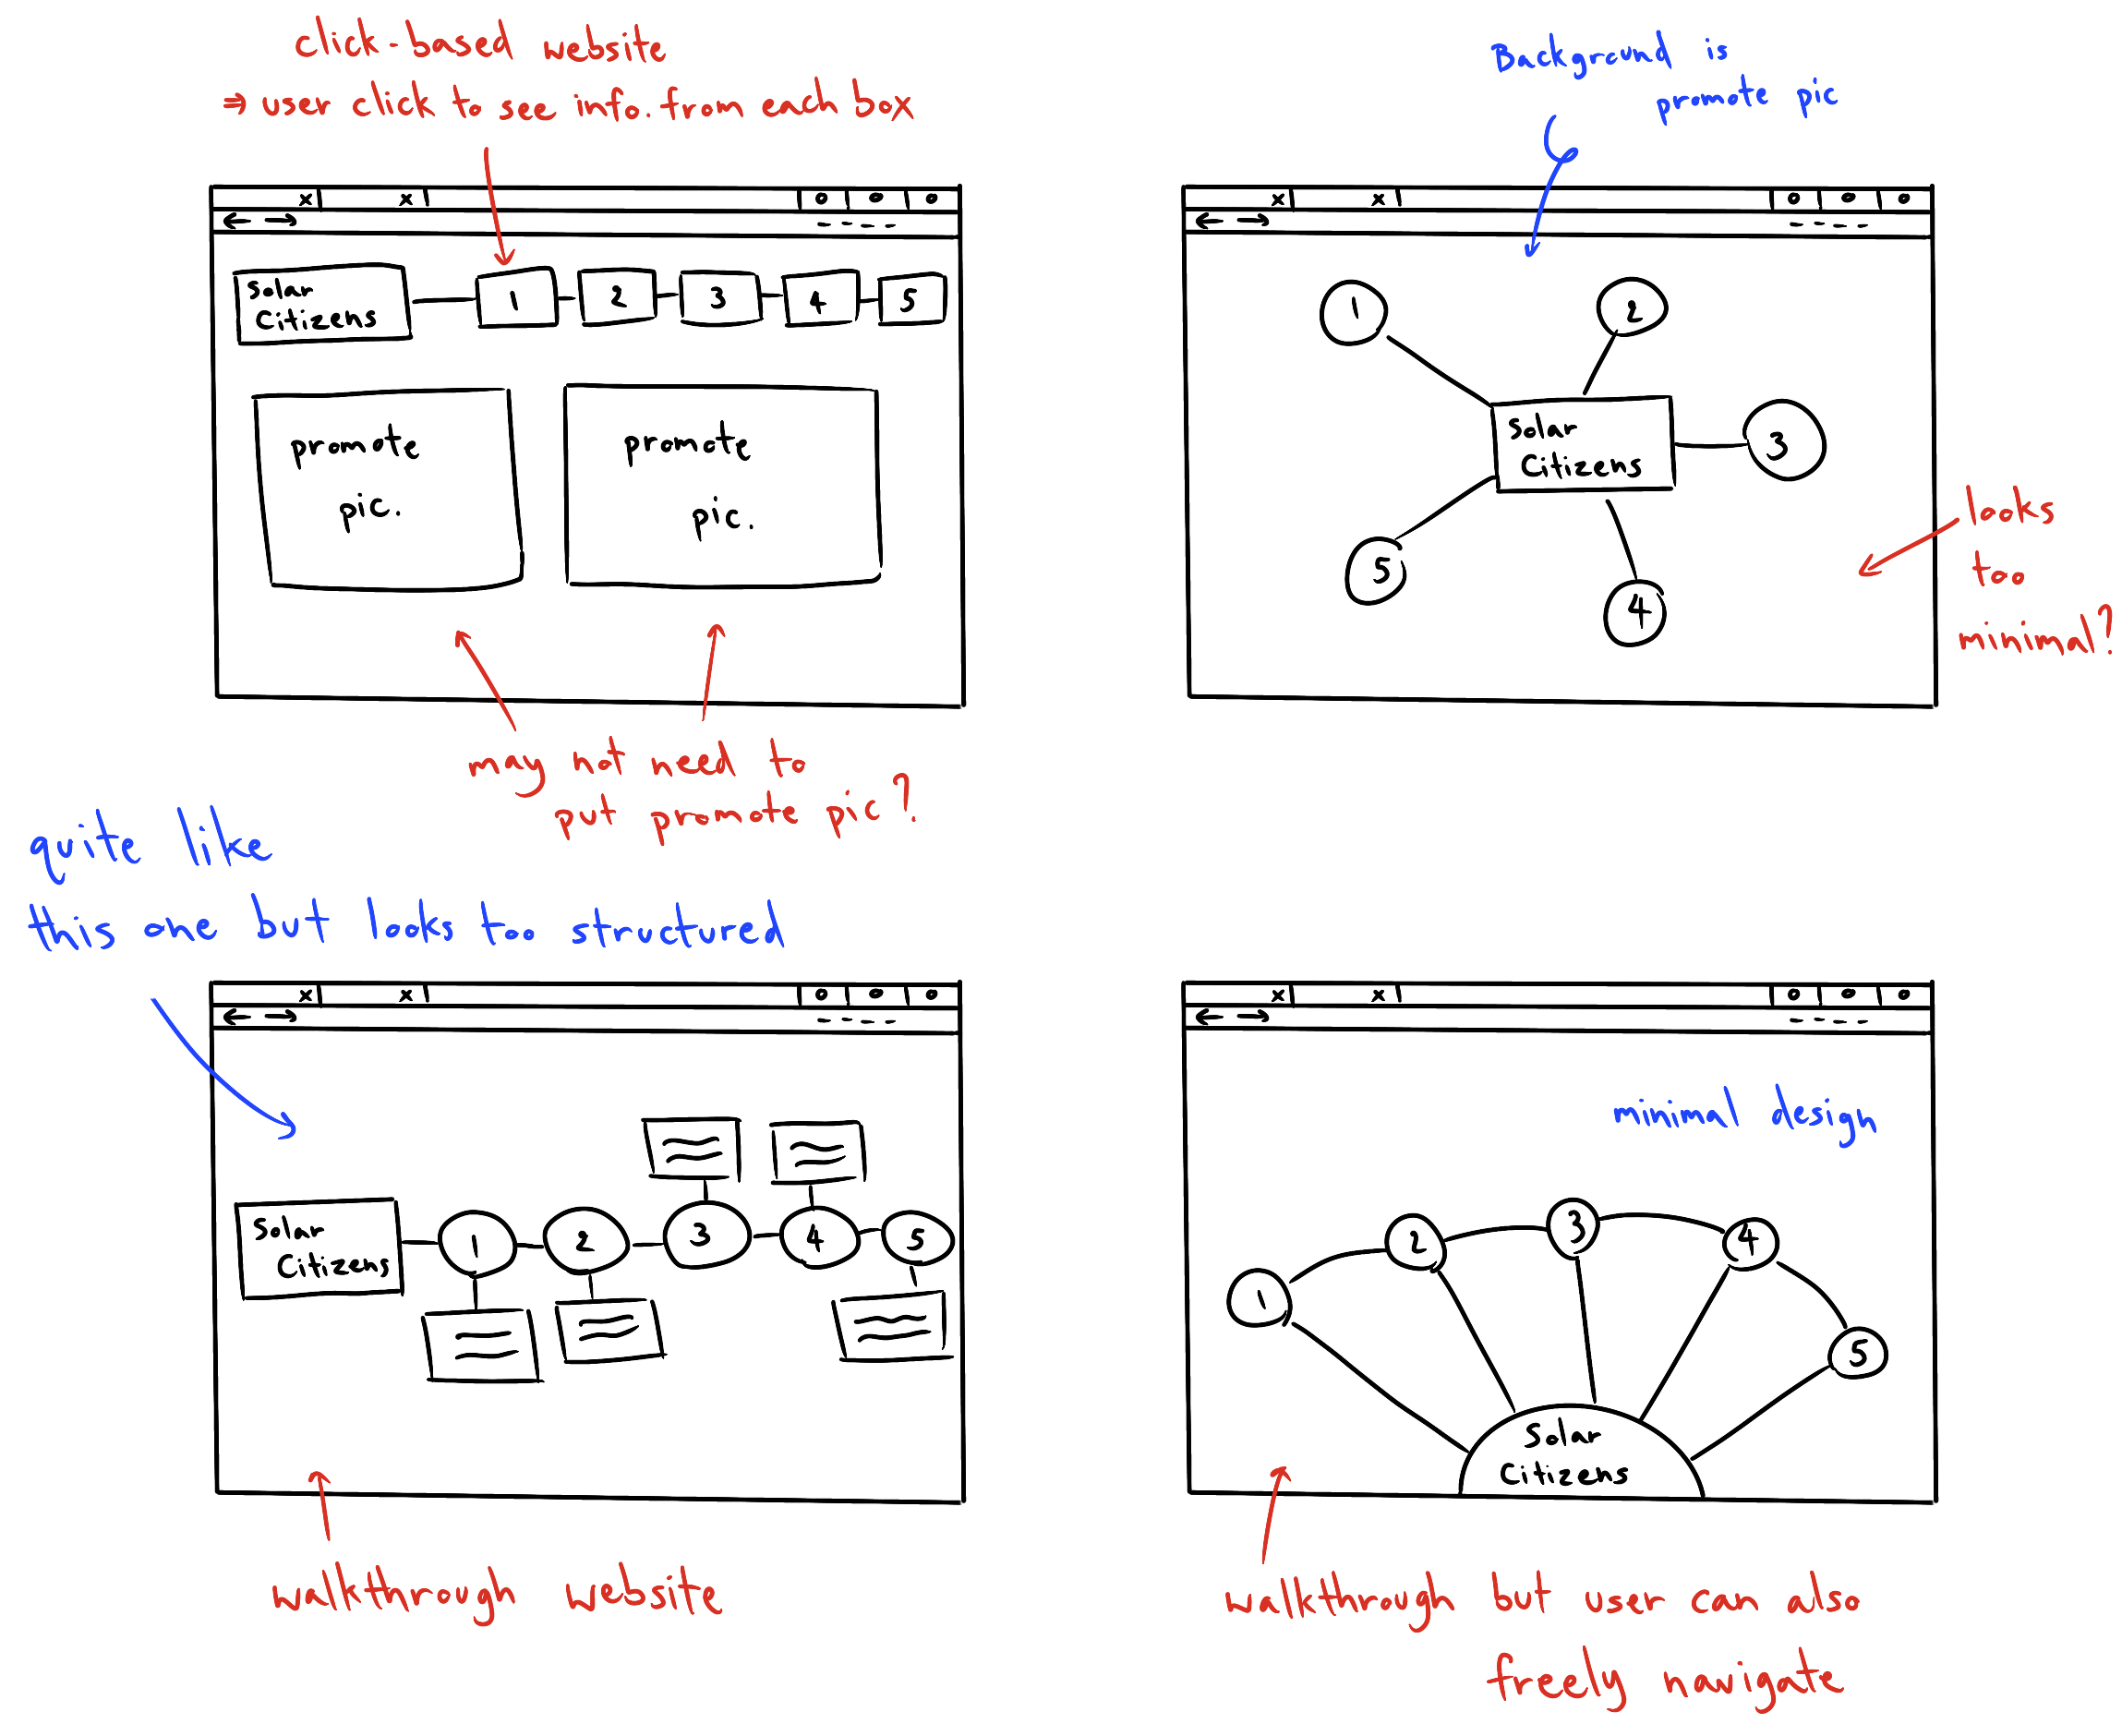 click-based website
⇒ user click to see info. from each box
x x o o o
Solar
Citizens
1
2
3
4
5
promote
pic.
promote
pic.
may not need to
put promote pic?
Background is
promote pic
x x o o o
1
2
Solar
Citizens
3
5
4
looks
too
minimal?
quite like
this one but looks too structured
x x o o o
Solar
Citizens
1
2
3
4
5
walkthrough website
x x o o o
minimal design
1
2
3
4
5
Solar
Citizens
walkthrough but user can also
freely navigate